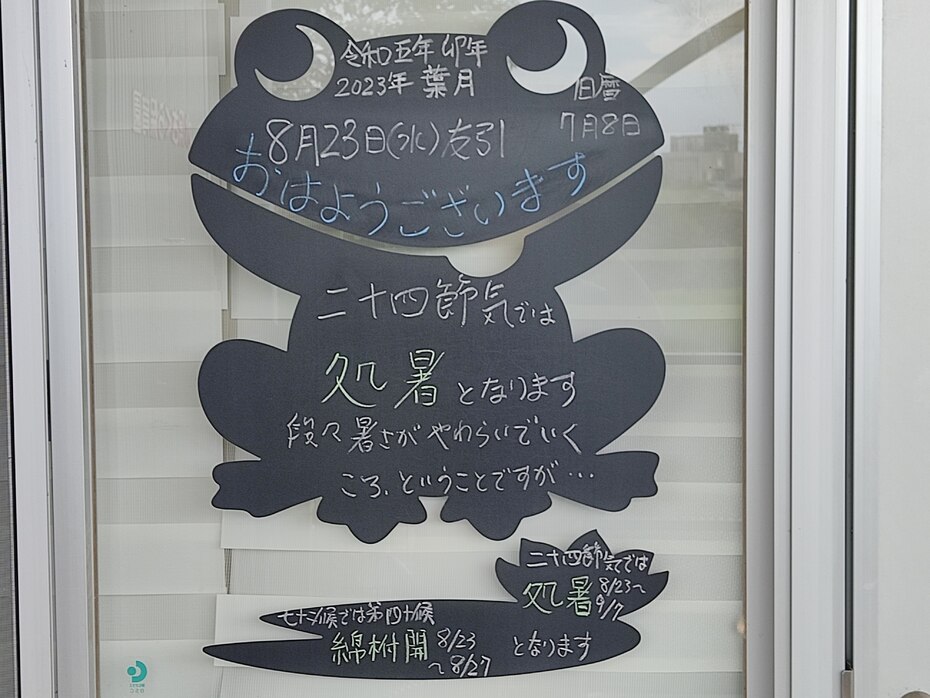 令和五年 卯年
2023年 葉月
旧暦
7月8日
8月23日(水)友引
おはようございます
二十四節気では
処暑となります
段々暑さがやわらいでいく
ころ、ということですが…
二十四節気では
処暑 8/23～
9/7
七十二候では第四十候
綿柎開 8/23
～8/27
となります